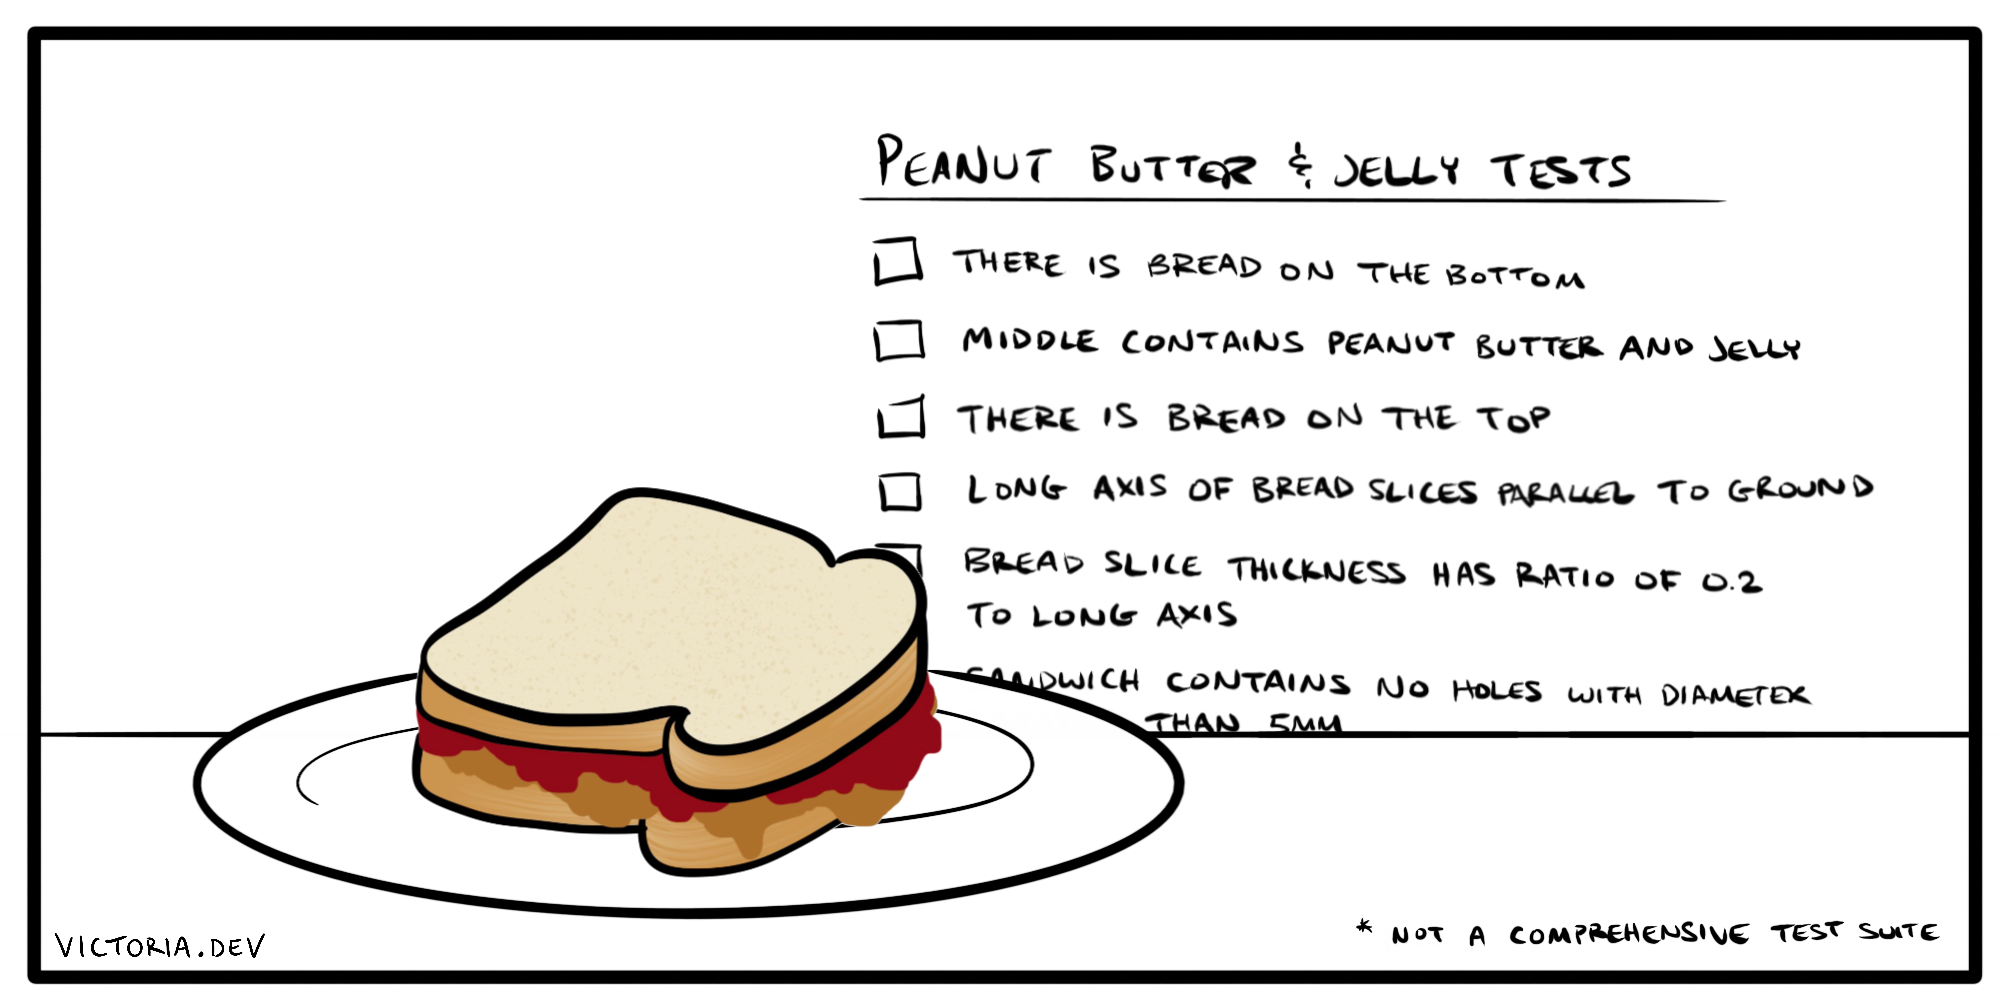 PEANUT BUTTER & JELLY TESTS
THERE IS BREAD ON THE BOTTOM
MIDDLE CONTAINS PEANUT BUTTER AND JELLY
THERE IS BREAD ON THE TOP
LONG AXIS OF BREAD SLICES PARALLEL TO GROUND
BREAD SLICE THICKNESS HAS RATIO OF 0.2
TO LONG AXIS
SANDWICH CONTAINS NO HOLES WITH DIAMETER
THAN 5MM
* NOT A COMPREHENSIVE TEST SUITE
VICTORIA.DEV